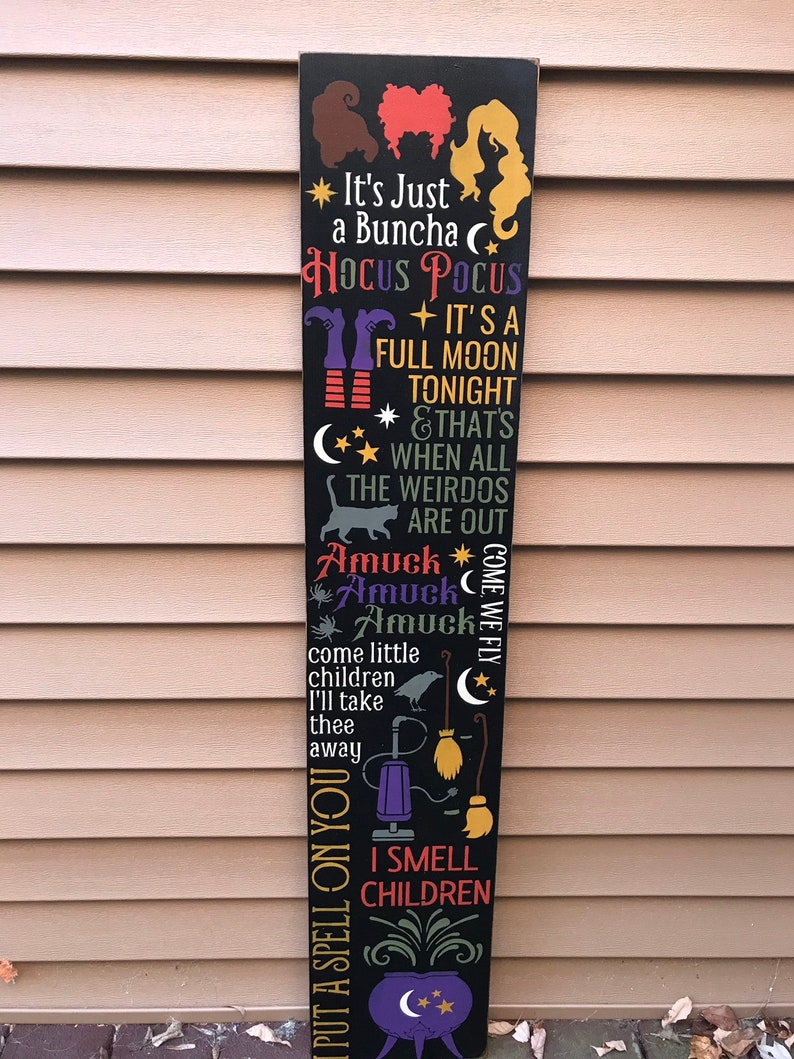 It's Just
a Buncha
Hocus Pocus
IT'S A
FULL MOON
TONIGHT
& THAT'S
WHEN ALL
THE WEIRDOS
ARE OUT
Amuck
Amuck
Amuck
COME, WE FLY
come little
children
I'll take
thee
away
I PUT A SPELL ON YOU
I SMELL
CHILDREN